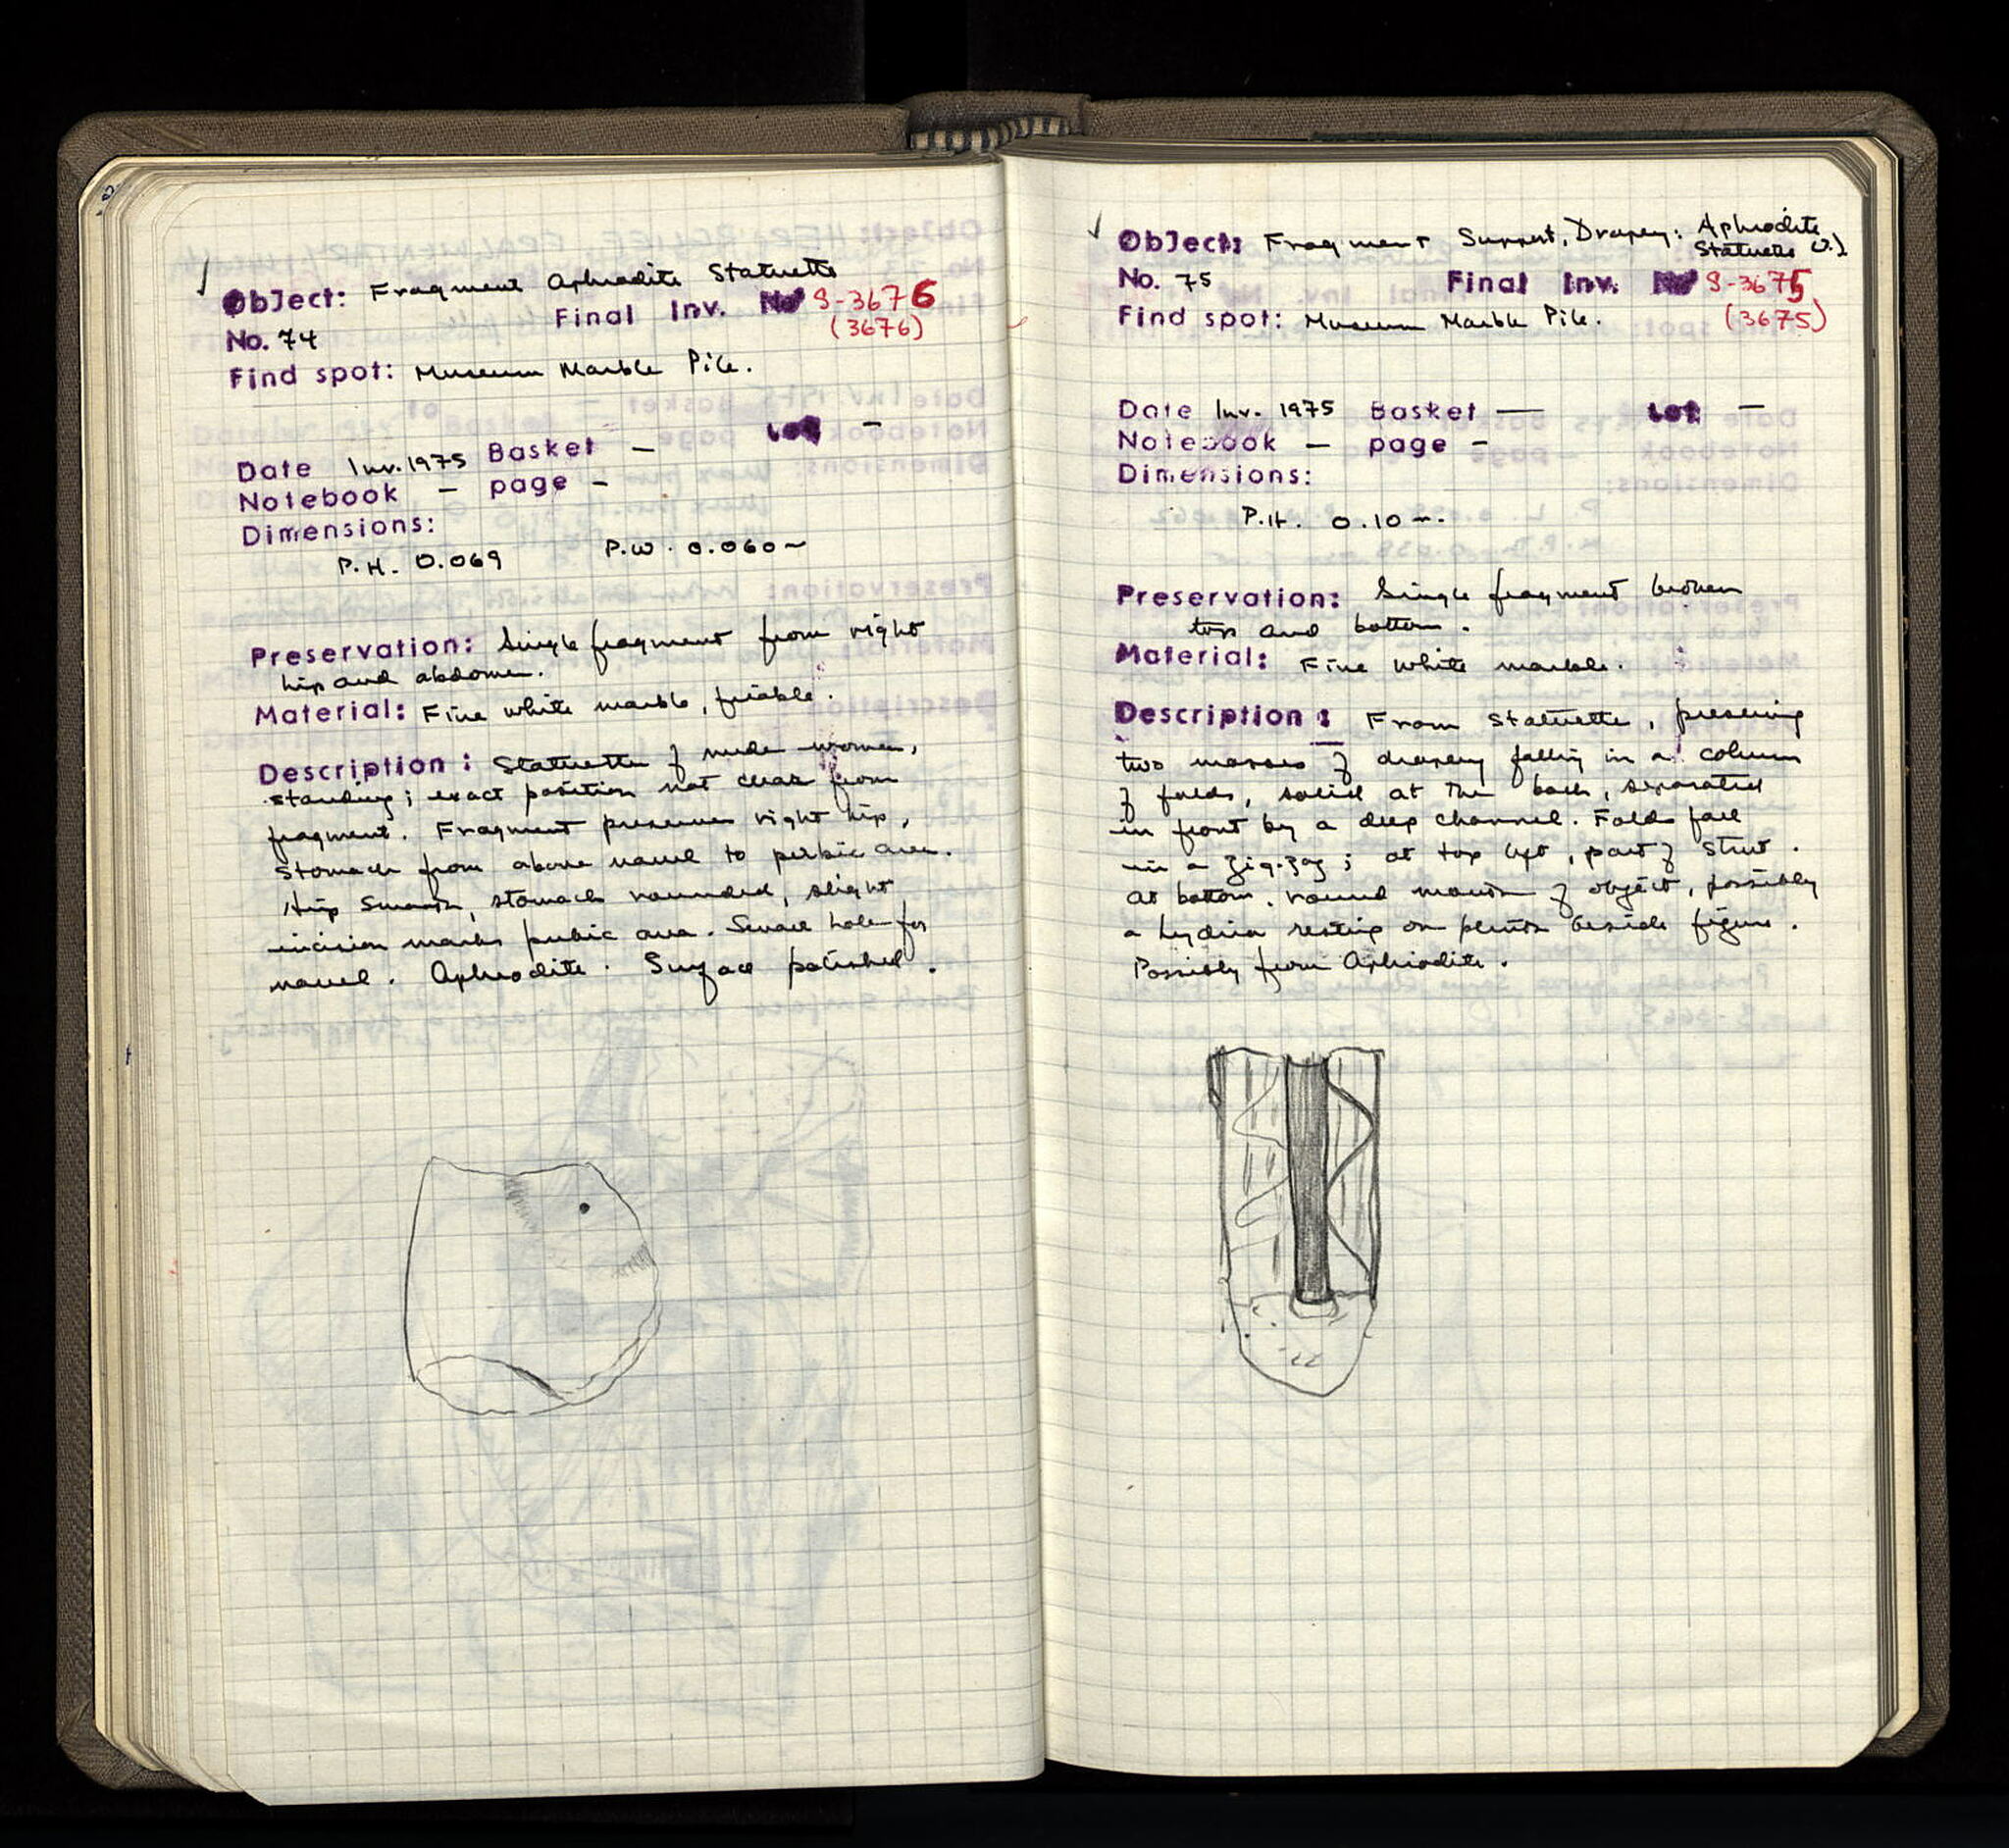 Object: Fragment Aphrodite Statuette
No. 74 Final Inv. No S-3676
(3676)
Find spot: Museum Marble Pile.
Date Inv. 1975 Basket — Lot —
Notebook — page —
Dimensions:
P.H. 0.069 P.W. 0.060
Preservation: Single fragment from right
hip and abdomen.
Material: Fine white marble, friable.
Description: Statuette of nude women,
standing; exact position not clear from
fragment. Fragment preserves right hip,
stomach from above navel to perbic area.
Hip smooth, stomach rounded, slight
incision marks pubic area. Small hole for
navel. Aphrodite. Surface polished.
Object: Fragment Support, Drapery: Aphrodite
Statuette (?)
No. 75 Final Inv. No S-3675
Find spot: Museum Marble Pile. (3675)
Date Inv. 1975 Basket — Lot —
Notebook — page —
Dimensions:
P.H. 0.10 m.
Preservation: Single fragment broken
top and bottom.
Material: Fine white marble.
Description: From statuette, preserving
two masses of drapery falling in a column
of folds, solid at the back, separated
in front by a deep channel. Folds fall
in a zig-zag; at top left, part of strut.
At bottom, round mouth of object, possibly
a hydria resting on plinth beside figure.
Possibly from Aphrodite.